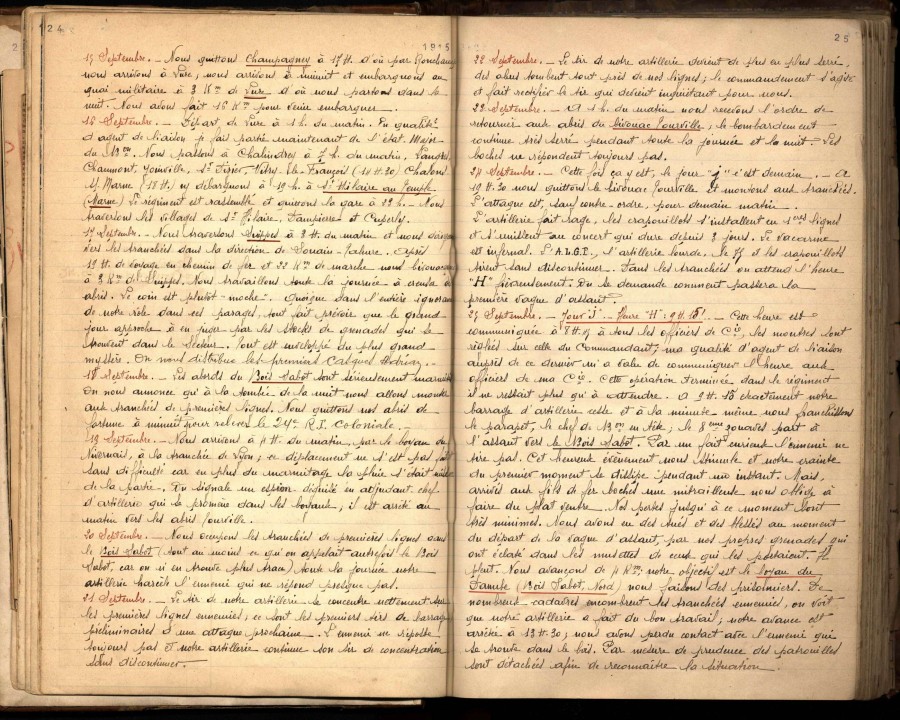 24
1915
15 Septembre. - Nous quittons Champagney à 17 H. d'où par Ronchamp
nous arrivons à Lure, nous arrivons à minuit et embarquons au
quai militaire à 3 Km de Lure d'où nous partons dans la
nuit. Nous avons fait 16 Km pour venir embarquer.
16 Septembre. - Départ de Lure à 1 h. du matin. En qualité
d'agent de liaison je fais partie maintenant de l'état-Major
du Bon. Nous passons à Chalindrey à 7 h. du matin, Langres,
Chaumont, Joinville, St Dizier, Vitry-le-François (14 H 30) Châlons
s/ Marne (17 H.) ny débarquons à 19 h. à St Hilaire au Temple
(Marne) Le régiment est rassemblé et quittons la gare à 22 h. - Nous
traversons les villages de St Hilaire, Dampierre et Cuperly.
17 Septembre. - Nous traversons Suippes à 3 H. du matin et nous dirigeons
vers les tranchées dans la direction de Souain-Tahure. Après
19 H. de voyage en chemin de fer et 22 Km de marche nous bivouaquons
à 3 Km de Suippes. Nous travaillons toute la journée à creuser des
abris. Le coin est plutôt "moche". Quoique dans l'entière ignorance
de notre rôle dans ces parages, tout fait prévoir que le grand
jour approche à en juger par les stocks de grenades qui se
trouvent dans le secteur. Tout est enveloppé du plus grand
mystère. On nous distribue les premiers Casques Adrian.
18 Septembre. - Les abords du Bois Sabot sont sérieusement marmités
On nous annonce qu'à la tombée de la nuit nous allons monter
aux tranchées de premières lignes. Nous quittons nos abris de
fortune à minuit pour relever le 24e R.I. Coloniale.
19 Septembre. - Nous arrivons à 4 H. du matin, par le boyau du
Nivernais, à la tranchée de Lyon; ce déplacement ne s'est pas fait
sans difficulté car en plus du marmitage la pluie s'était mise
de la partie. On signale un espion, déguisé en adjudant-chef
d'artillerie qui se promène dans les boyaux, il est arrêté au
matin vers les abris Tourville.
20 Septembre. - Nous occupons les tranchées de premières lignes dans
le Bois Sabot (tout au moins ce qu'on appelait autrefois le Bois
Sabot, car on n'en trouve plus trace) toute la journée notre
artillerie harcèle l'ennemi qui ne répond presque pas.
21 Septembre. - Le tir de notre artillerie se concentre nettement sur
les premières lignes ennemies; ce sont les premiers tirs de barrage
préliminaires d'une attaque prochaine. L'ennemi ne riposte
toujours pas et notre artillerie continue son tir de concentration
sans discontinuer.
25
22 Septembre. - Le tir de notre artillerie devient de plus en plus serré,
des obus tombent tout près de nos lignes; le commandement s'agite
et fait rectifier le tir qui devient inquiétant pour nous.
23 Septembre. - A 1 h. du matin nous recevons l'ordre de
retourner aux abris du bivouac Tourville; le bombardement
continue très serré pendant toute la journée et la nuit. Les
boches ne répondent toujours pas.
24 Septembre. - Cette fois ça y est, le jour "j" c'est demain. - A
19 H. 30 nous quittons le bivouac Tourville et montons aux tranchées.
L'attaque est, sauf contre-ordre, pour demain matin.
L'artillerie fait rage, les crapouillots s'installent en 1ères lignes
et s'unissent au concert qui dure depuis 3 jours. Le vacarme
est infernal. L'A.L.G.P., l'artillerie lourde, le 75 et les crapouillots
tirent sans discontinuer. Dans les tranchées on attend l'heure
"H" fiévreusement. On se demande comment passera la
première vague d'assaut.
25 Septembre. - Jour "J". - Heure "H": 9 H. 15'. - Cette heure est
communiquée à 8 H. 15 à tous les officiers de Cie, les montres sont
réglées sur celle du Commandant; ma qualité d'agent de liaison
auprès de ce dernier m'a valu de communiquer l'heure aux
officiers de ma Cie. Cette opération terminée dans le régiment
il ne restait plus qu'à attendre. A 9 H. 15' exactement notre
barrage d'artillerie cesse et à la minute même nous franchissons
le parapet, le chef de Bon en tête; le 8eme zouaves part à
l'assaut vers le Bois Sabot. Par un fait curieux l'ennemi ne
tire pas. Cet heureux évènement nous stimule et notre crainte
du premier moment se dissipe pendant un instant. Mais,
arrivés aux fils de fer boches une mitrailleuse nous oblige à
faire du plat ventre. Nos pertes jusqu'à ce moment sont
très minimes. Nous avons eu des tués et des blessés au moment
du départ de la vague d'assaut, par nos propres grenades qui
ont éclaté dans les musettes de ceux qui les portaient. Il
pleut. Nous avançons de 4 Km; notre objectif est le boyau du
Danube (Bois Sabot, Nord) nous faisons des prisonniers. De
nombreux cadavres encombrent les tranchées ennemies, on voit
que notre artillerie a fait du bon travail; notre avance est
arrêtée à 13 H. 30; nous avons perdu contact avec l'ennemi qui
se trouve dans le bois. Par mesure de prudence des patrouilles
sont détachées afin de reconnaître la situation.